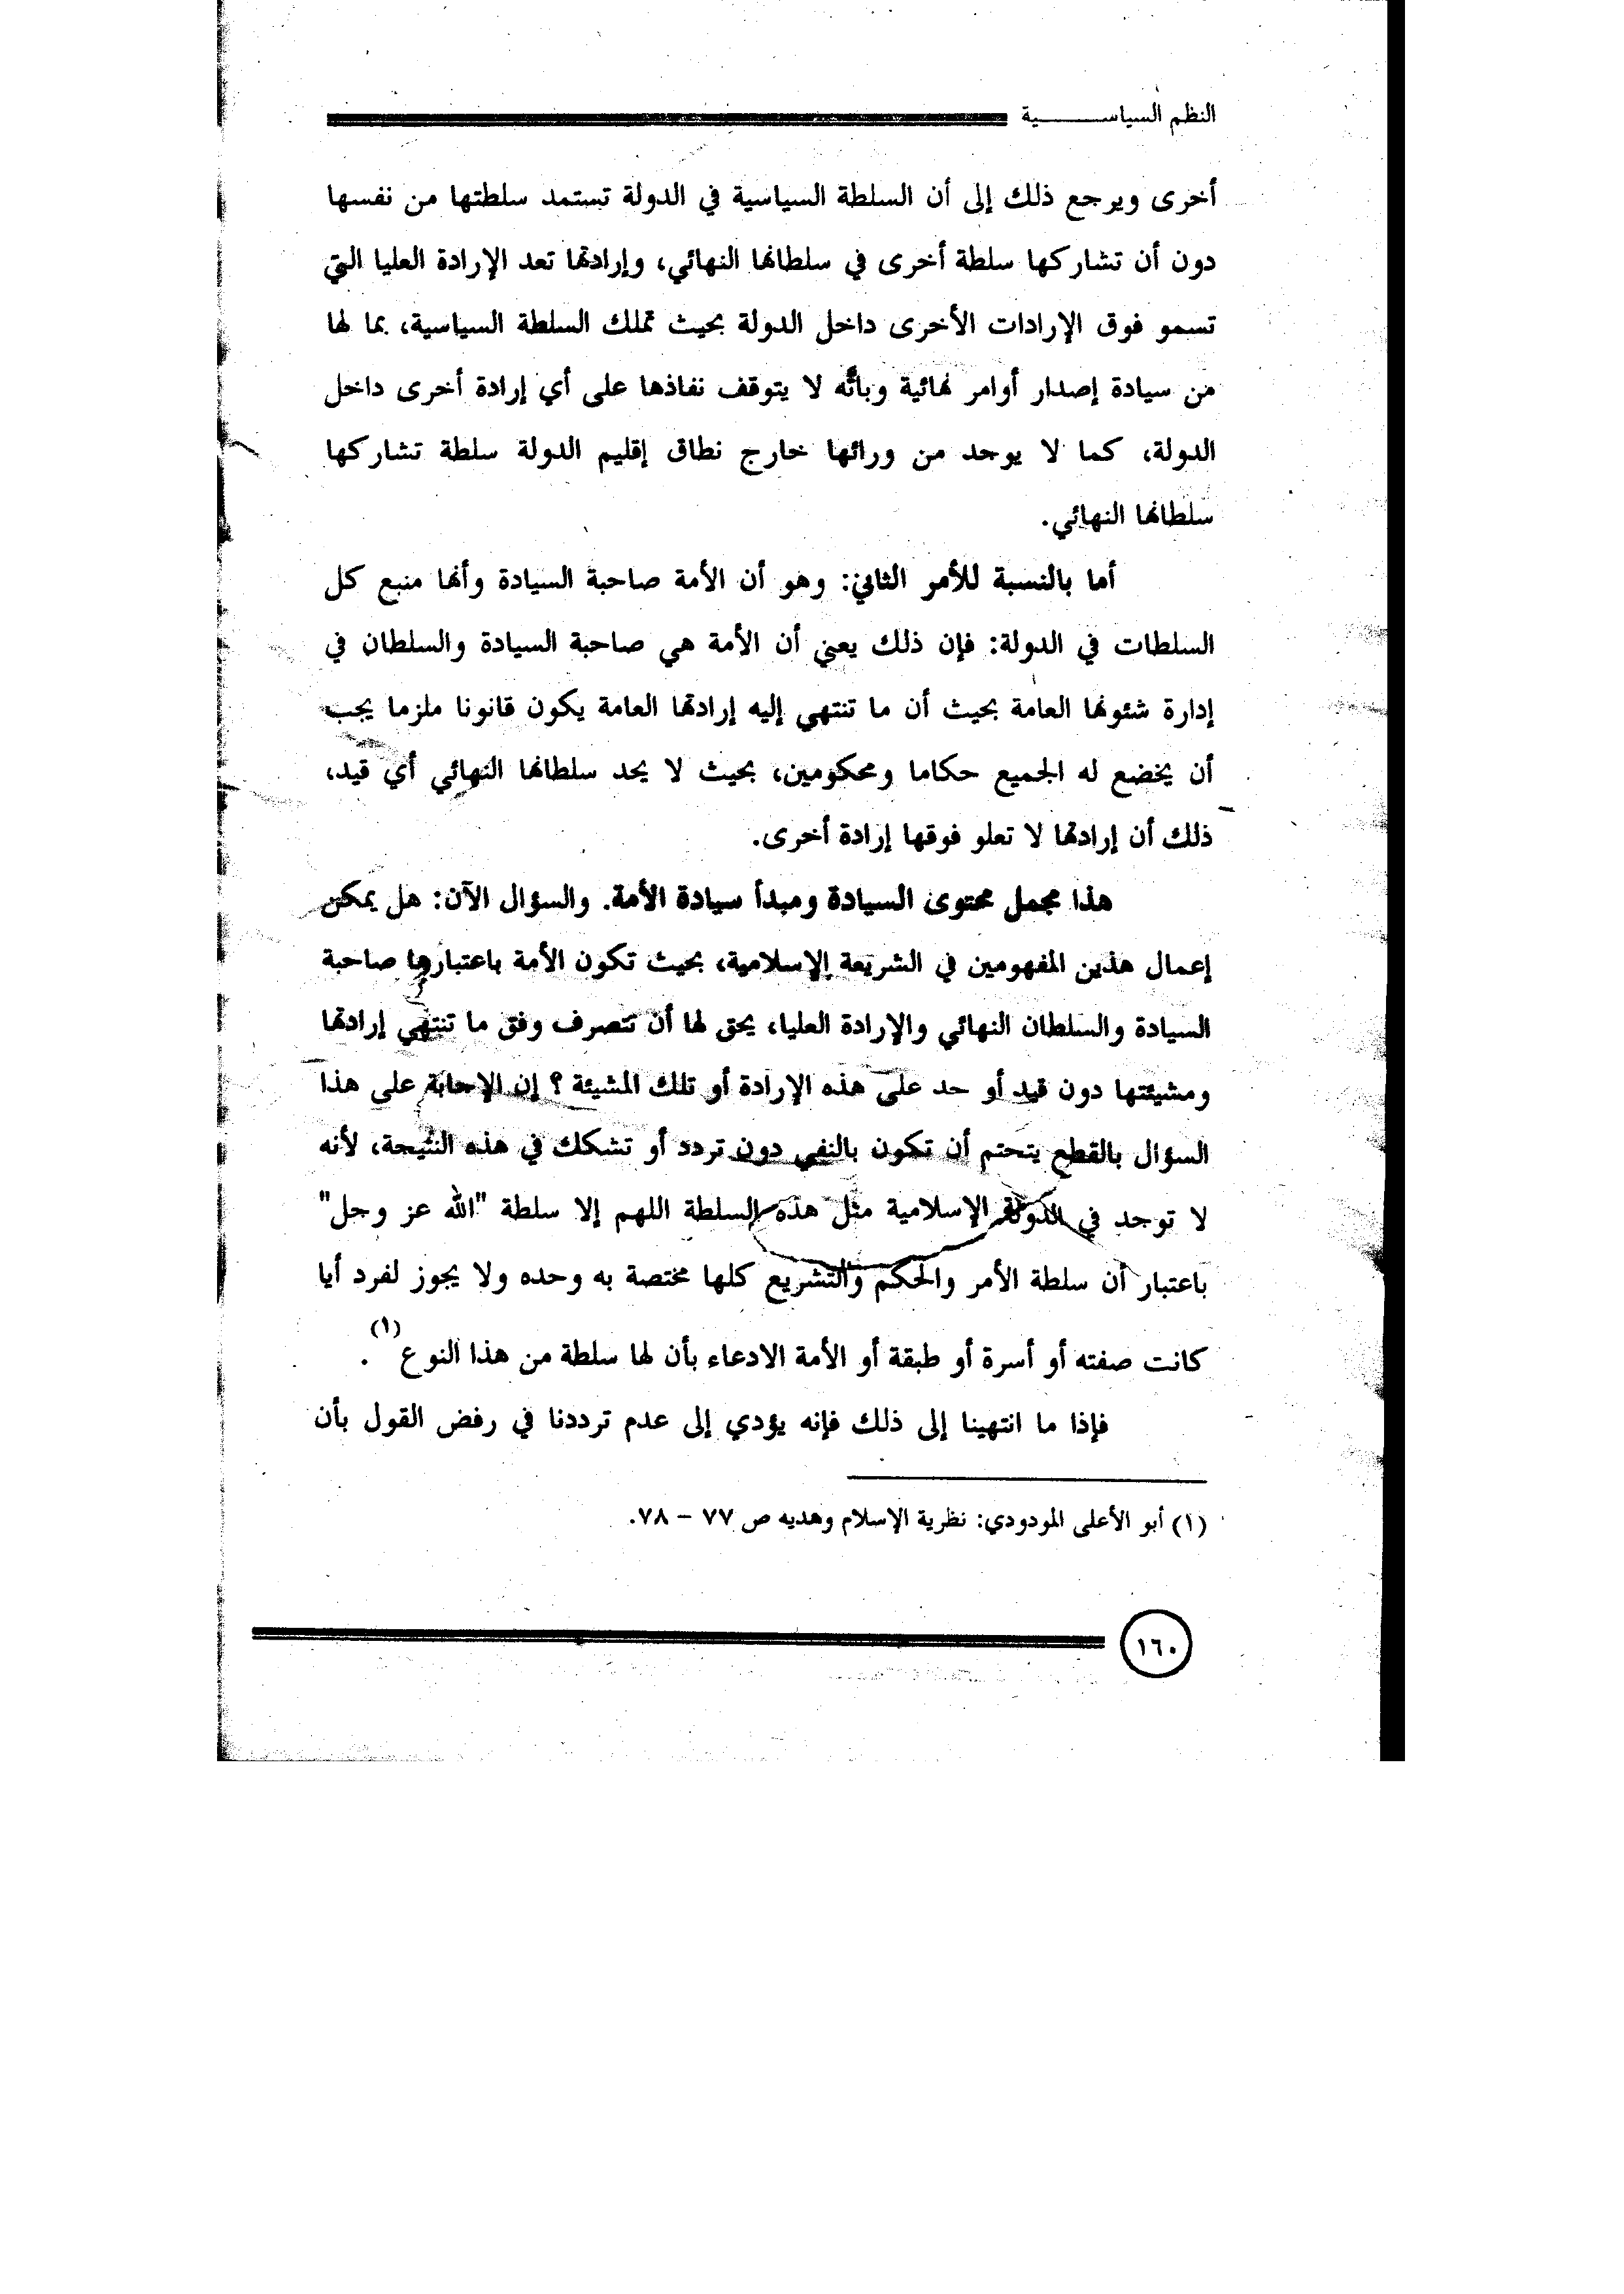 النظم السياســـــــية
أخرى ويرجع ذلك إلى أن السلطة السياسية في الدولة تستمد سلطتها من نفسها
دون أن تشاركها سلطة أخرى في سلطانها النهائي، وإرادتها تعد الإرادة العليا التي
تسمو فوق الإرادات الأخرى داخل الدولة بحيث تملك السلطة السياسية، بما لها
من سيادة إصدار أوامر نهائية وبأنَّه لا يتوقف نفاذها على أي إرادة أخرى داخل
الدولة، كما لا يوجد من ورائها خارج نطاق إقليم الدولة سلطة تشاركها
سلطانها النهائي.
أما بالنسبة للأمر الثاني: وهو أن الأمة صاحبة السيادة وأنها منبع كل
السلطات في الدولة: فإن ذلك يعني أن الأمة هي صاحبة السيادة والسلطان في
إدارة شئونها العامة بحيث أن ما تنتهي إليه إرادتها العامة يكون قانونا ملزما يجب
أن يخضع له الجميع حكاما ومحكومين، بحيث لا يحد سلطانها النهائي أي قيد،
ذلك أن إرادتها لا تعلو فوقها إرادة أخرى.
هذا مجمل محتوى السيادة ومبدأ سيادة الأمة. والسؤال الآن: هل يمكن
إعمال هذين المفهومين في الشريعة الإسلامية، بحيث تكون الأمة باعتبارها صاحبة
السيادة والسلطان النهائي والإرادة العليا، يحق لها أن تتصرف وفق ما تنتهي إرادتها
ومشيئتها دون قيد أو حد على هذه الإرادة أو تلك المشيئة ؟ إن الإجابة على هذا
السؤال بالقطع يتحتم أن تكون بالنفي دون تردد أو تشكك في هذه النتيجة، لأنه
لا توجد في الدولة الإسلامية مثل هذه السلطة اللهم إلا سلطة "الله عز وجل"
باعتبار أن سلطة الأمر والحكم والتشريع كلها مختصة به وحده ولا يجوز لفرد أيا
كانت صفته أو أسرة أو طبقة أو الأمة الادعاء بأن لها سلطة من هذا النوع (١).
فإذا ما انتهينا إلى ذلك فإنه يؤدي إلى عدم ترددنا في رفض القول بأن
(١) أبو الأعلى المودودي: نظرية الإسلام وهديه ص ٧٧ – ٧٨.
١٦٠